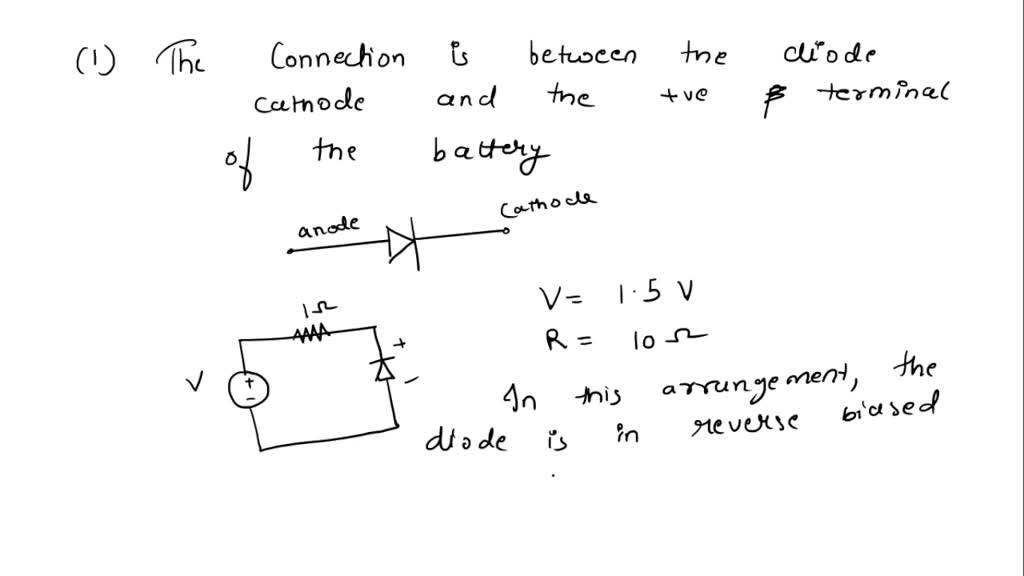 (1) The Connection is between the diode
cathode and the +ve terminal
of the battery
anode cathode
1Ω
V = 1.5 V
R = 10 Ω
V + - + -
In this arrangement, the
diode is in reverse biased